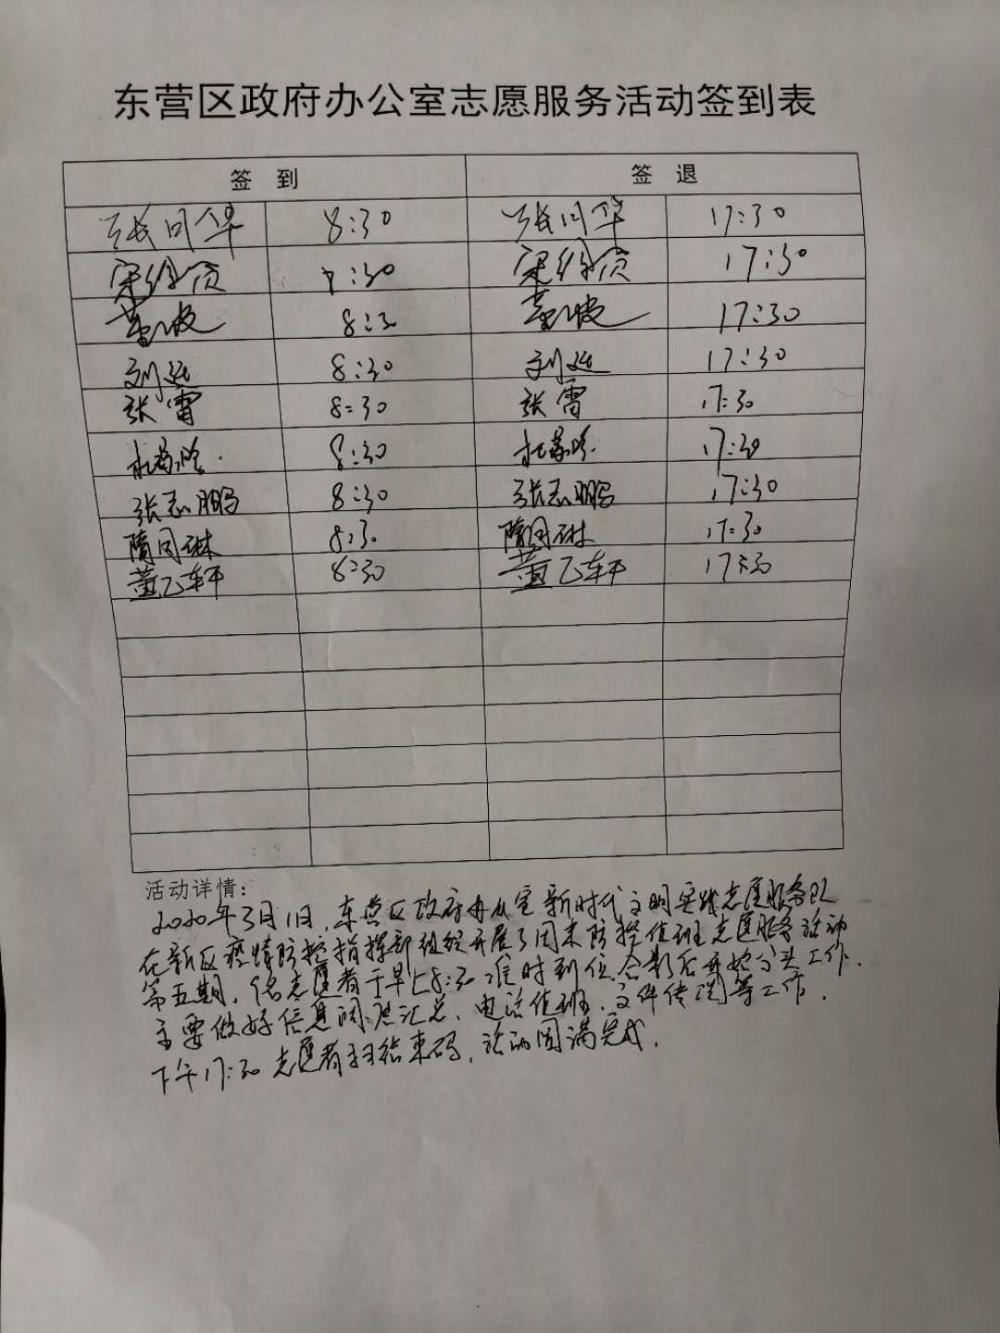 东营区政府办公室志愿服务活动签到表
签 到 签 退
8:30 17:30
17:30
董波 8:3 董波 17:30
刘延 8:30 刘延 17:30
张雷 8:30 张雷 17:30
8:30 17:30
张志鹏 8:30 张志鹏 17:30
隋同琳 8:30 隋同琳 17:30
董乙轩 8:30 董乙轩 17:30
活动详情:
2020年3月1日,东营区政府办公室新时代文明实践志愿服务队
在新区疫情防控指挥部组织开展了周末防控值班志愿服务活动
第五期,志愿者于早上8:30准时到位,合影后开始分头工作,
主要做好信息汇总、电话值班、文件传阅等工作,
下午17:30志愿者扫结束码,活动圆满完成.